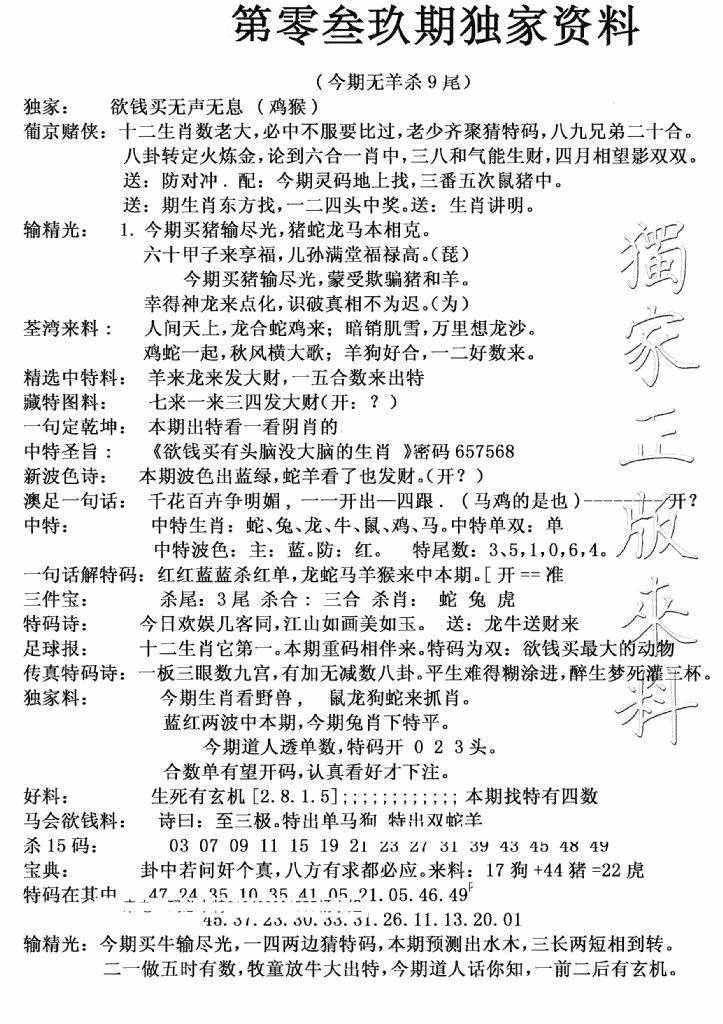 第零叁玖期独家资料
（今期无羊杀9尾）
独家： 欲钱买无声无息 （鸡猴）
葡京赌侠：十二生肖数老大，必中不服要比过，老少齐聚猜特码，八九兄弟二十合。
八卦转定火炼金，论到六合一肖中，三八和气能生财，四月相望影双双。
送：防对冲．配：今期灵码地上找，三番五次鼠猪中。
送：期生肖东方找，一二四头中奖。送：生肖讲明。
输精光： 1. 今期买猪输尽光，猪蛇龙马本相克。
六十甲子来享福，儿孙满堂福禄高。（琵）
今期买猪输尽光，蒙受欺骗猪和羊。
幸得神龙来点化，识破真相不为迟。（为）
荃湾来料： 人间天上，龙合蛇鸡来；暗销肌雪，万里想龙沙。
鸡蛇一起，秋风横大歌；羊狗好合，一二好数来。
精选中特料： 羊来龙来发大财，一五合数来出特
藏特图料： 七来一来三四发大财（开：？）
一句定乾坤： 本期出特看一看阴肖的
中特圣旨： 《欲钱买有头脑没大脑的生肖 》密码657568
新波色诗： 本期波色出蓝绿，蛇羊看了也发财。（开？）
澳足一句话： 千花百卉争明媚，一一开出—四跟．（马鸡的是也）--------开？
中特： 中特生肖：蛇、兔、龙、牛、鼠、鸡、马。中特单双：单
中特波色：主：蓝。防：红。 特尾数：3、5，1，0，6，4。
一句话解特码：红红蓝蓝杀红单，龙蛇马羊猴来中本期。［开==准
三件宝： 杀尾：3尾 杀合：三合 杀肖： 蛇 兔 虎
特码诗： 今日欢娱几客同，江山如画美如玉。 送：龙牛送财来
足球报： 十二生肖它第一。本期重码相伴来。特码为双：欲钱买最大的动物
传真特码诗：一板三眼数九宫，有加无减数八卦。平生难得糊涂进，醉生梦死灌三杯。
独家料： 今期生肖看野兽， 鼠龙狗蛇来抓肖。
蓝红两波中本期，今期兔肖下特平。
今期道人透单数，特码开 0 2 3头。
合数单有望开码，认真看好才下注。
好料： 生死有玄机［2.8.1.5］；；；；；；；；；；；；本期找特有四数
马会欲钱料： 诗曰：至三极。特出单马狗 特出双蛇羊
杀15码： 03 07 09 11 15 19 21 23 27 31 39 43 45 48 49
宝典： 卦中若问奸个真，八方有求都必应。来料：17狗+44猪=22虎
特码在其中 47.24.35.10.35.41.05.21.05.46.49
45.37.23.30.33.31.26.11.13.20.01
输精光：今期买牛输尽光，一四两边猜特码，本期预测出水木，三长两短相到转。
二一做五时有数，牧童放牛大出特，今期道人话你知，一前二后有玄机。
獨家正版來料